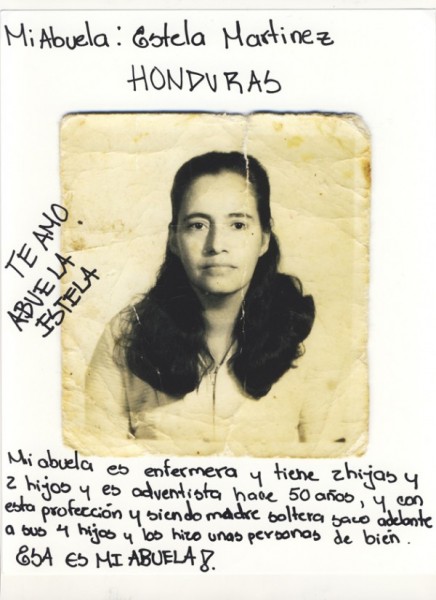 Mi Abuela: Estela Martinez
HONDURAS
TE AMO
ABUELA
ESTELA
Mi abuela es enfermera y tiene 2 hijas y
2 hijos y es adventista hace 50 años, y con
esta profección y siendo madre soltera saco adelante
a sus 4 hijos y los hizo unas personas de bien.
ESA ES MI ABUELA